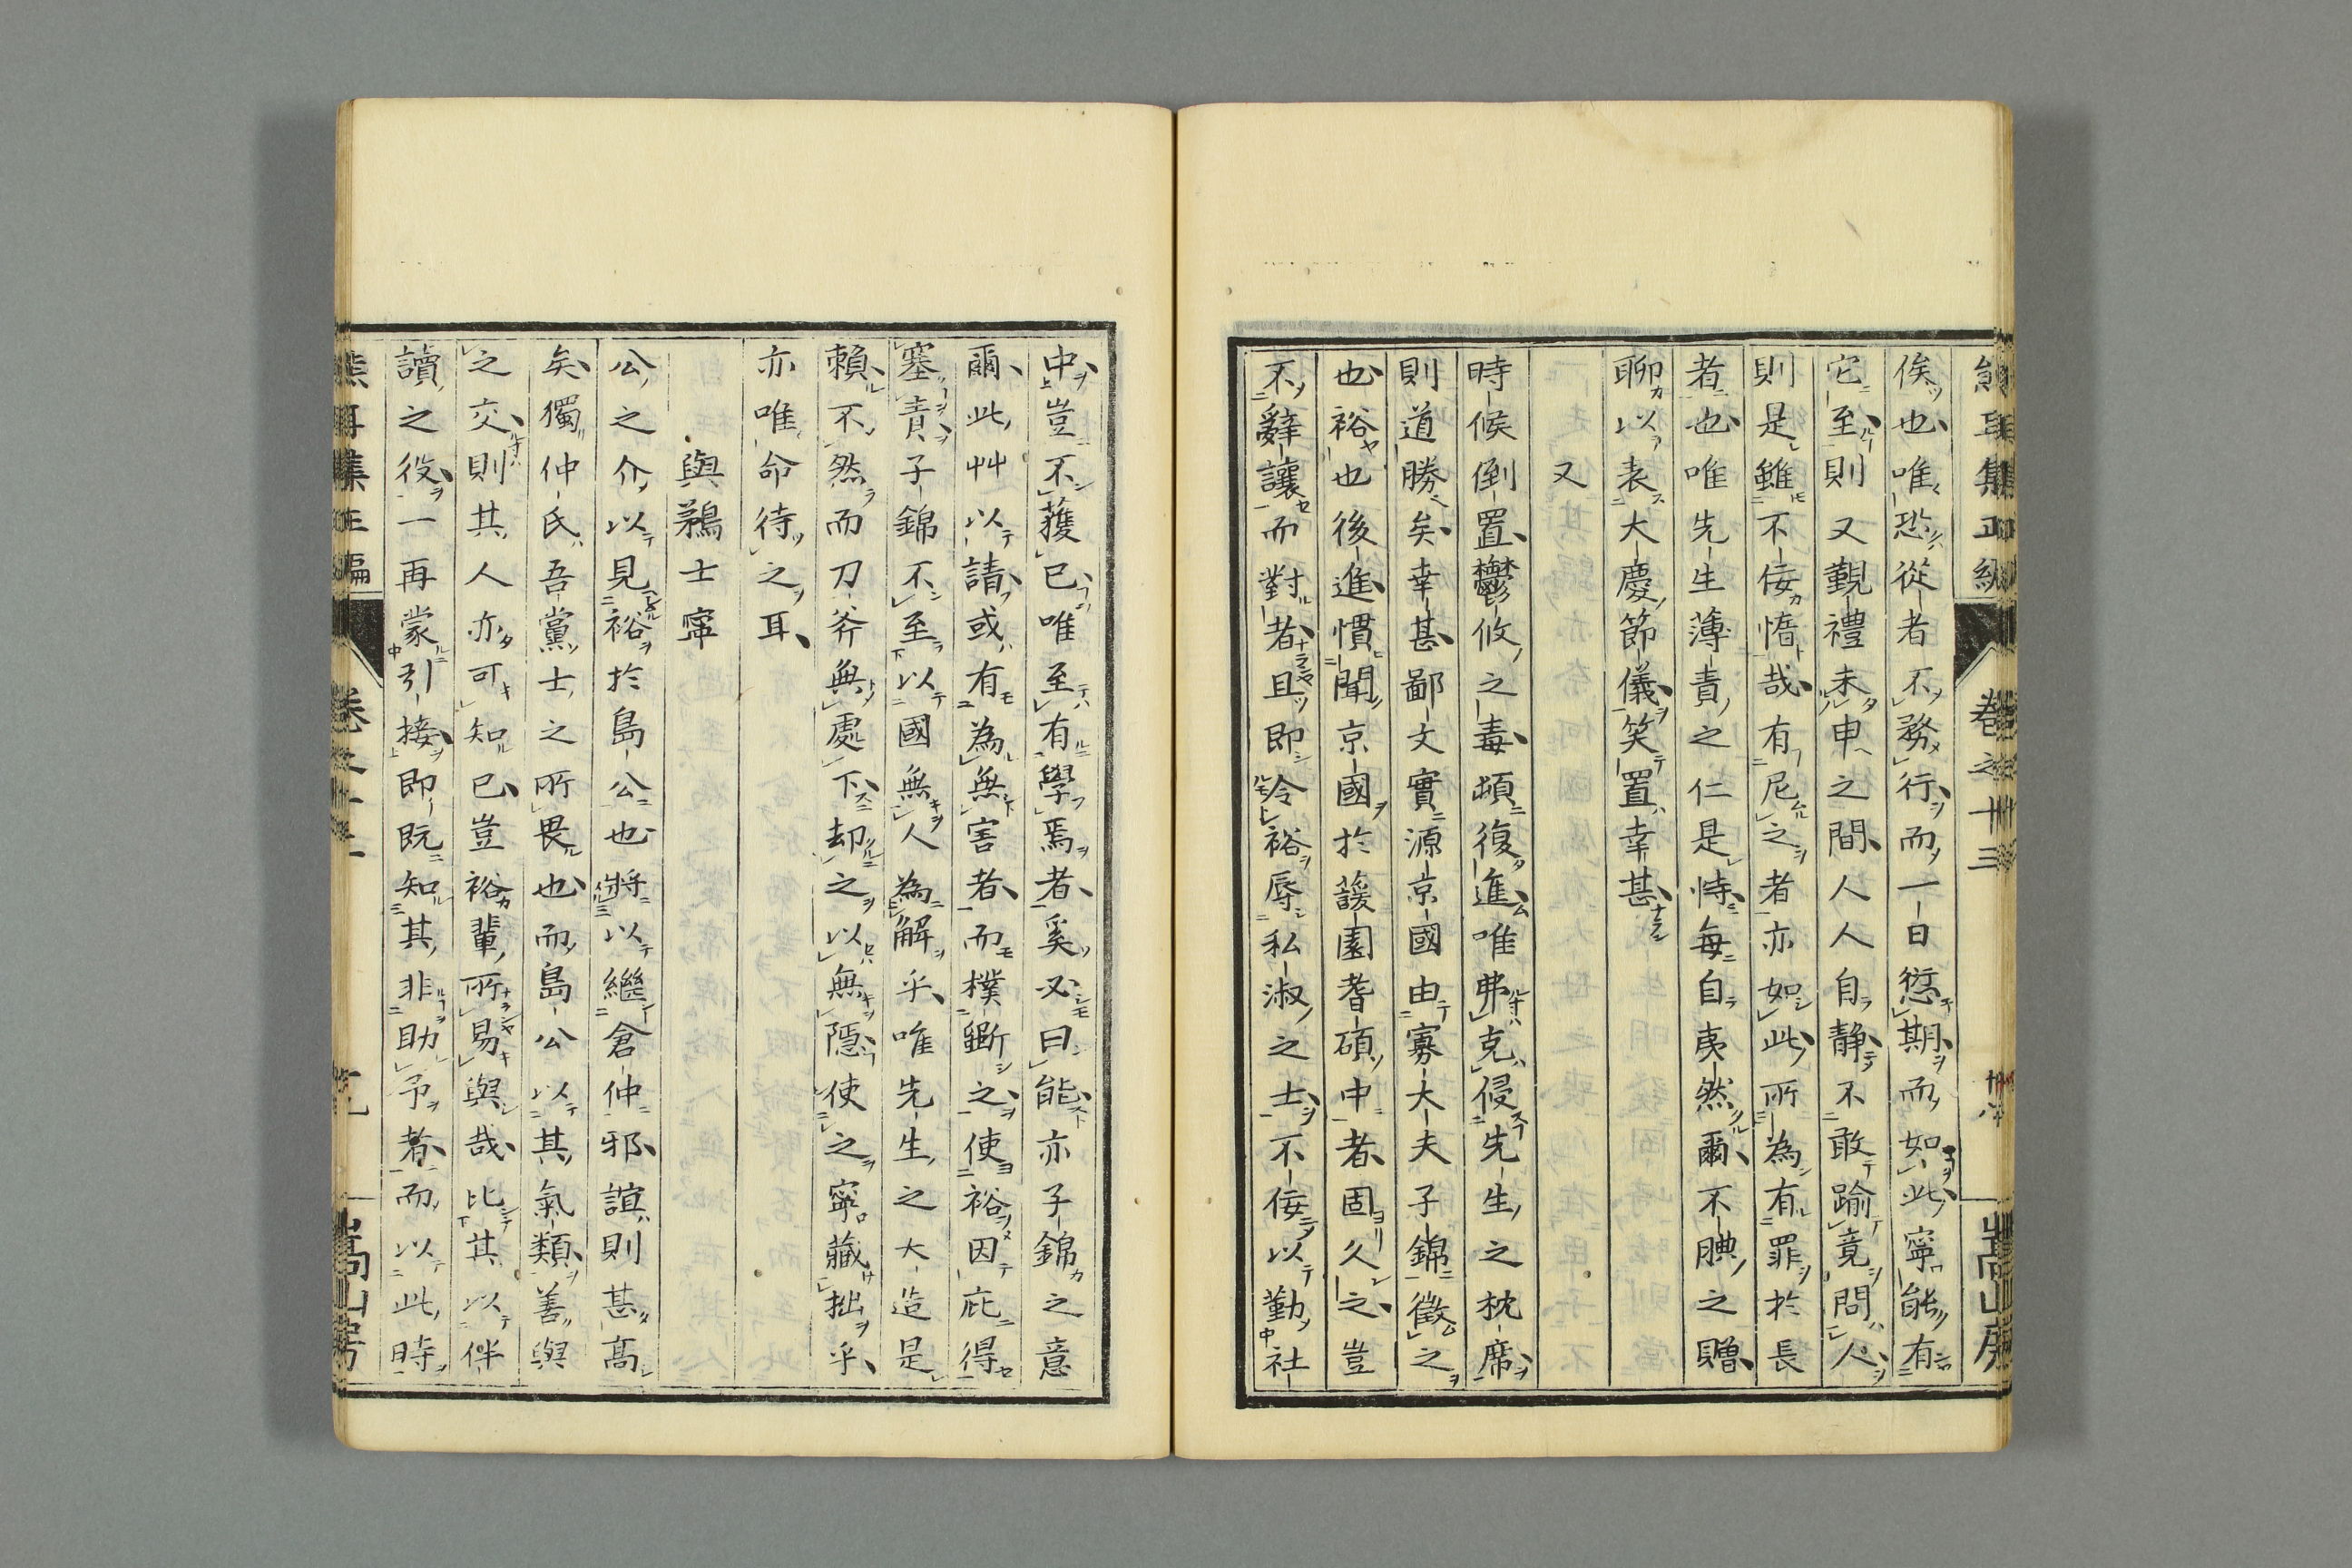 俟也唯恐從者不務行而一日愆期而如此寧能有
它至則又覲禮未申之間人人自靜不敢踰竟問人
則是雖不佞惛哉有尼之者亦如此所為有罪於長
者也唯先生薄責之仁是恃每自夷然爾不腆之贈
聊以表大慶節儀笑置幸甚
又
時候倒置鬱攸之毒頻復進唯弗克侵先生之枕席
則道勝矣幸甚鄙文實源京國由寡大夫子錦徵之
也裕也後進慣聞京國於蘐園耆碩中者固久之豈
不辭讓而對者且即令裕辱私淑之士不佞以勤社
中豈不獲已唯至有學焉者奚必曰能亦子錦之意
爾此艸以請或有為無害者而樸斲之使裕因庇得
塞責子錦不至以國無人為解乎唯先生之大造是
賴不然而刀斧無處下却之以無隱使之寧藏拙乎
亦唯命待之耳
與鵜士寧
公之介以見裕於島公也將以繼倉仲邪誼則甚高
矣獨仲氏吾黨士之所畏也而島公以其氣類善與
之交則其人亦可知已豈裕輩所易與哉比其以伴
讀之役一再蒙引接即既知其非助予者而以此時
卷之十三
嵩山房